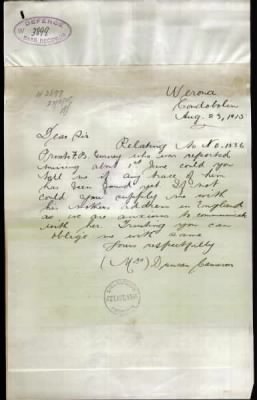 DEFENCE
W 3899
BASE RECORDS
Werona
Condobolin
Aug. 23, 1915
Dear Sir
Relating to No. 1536
Private F. B. who was reported
missing about 1st June could you
tell me if any trace of him
has been found yet If not
could you supply me with
his mothers address in England
as we are anxious to communicate
with her. Trusting you can
oblige me with same
Yours respectfully
(Mrs) Duncan Cameron